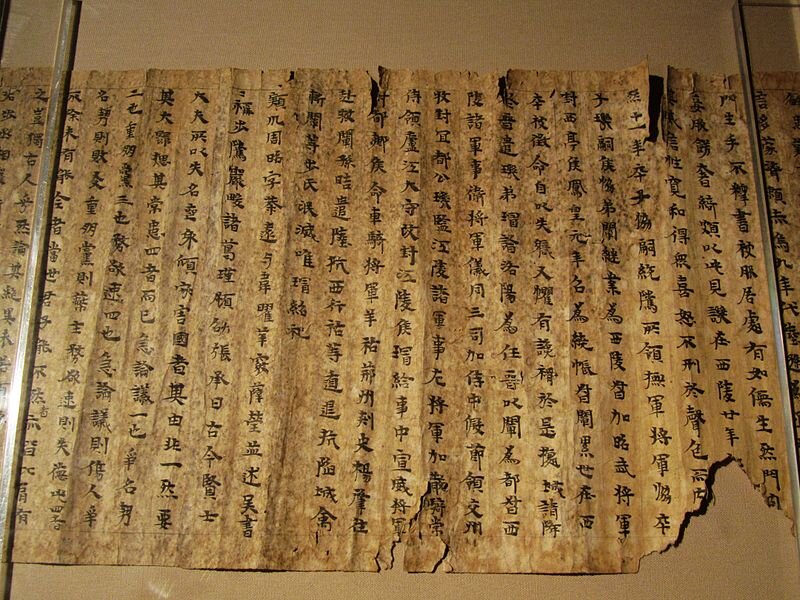 言多蒙濟賴赤烏九年代陸遜為
門生手不釋書被服居處有如儒生然門內
妾服飾奢綺頗以此見譏在西陵廿年
其威信性寬和得眾喜怒不形於聲色而內
然十一年卒子協嗣統騭所領撫軍將軍協卒
子璣嗣侯協弟闡繼業為西陵督加昭武將軍
封西亭侯鳳皇元年召為繞帳督闡累世在西
卒被徵命自以失職又懼有讒禍於是據城請降
晉遣璣弟璿詣洛陽為任晉以闡為都督西
陵諸軍事衛將軍儀同三司加侍中假節領交州
牧封宜都公璣監江陵諸軍事左將軍加散騎常
侍領廬江太守改封江陵侯璿給事中宣威將軍
封都鄉侯命車騎將軍羊祜荊州刺史楊肇往
赴救闡孫晧遣陸抗西行祜等遁退抗陷城禽
斬闡等步氏泯滅唯璿紹祀
潁川周昭字恭遠與韋曜華覈薛瑩並述吳書
稱步騭嚴畯諸葛瑾顧劭張承曰古今賢士
大夫所以失名喪身傾家害國者其由非一然要
其大歸揔其常患四者而已急論議一也爭名勢
二也重朋黨三也務欲速四也急論議則傷人爭
名勢則敗友重朋黨則蔽主務欲速則失德此四者
不除未有能全者當世君子能不然者亦皆比肩有
之豈獨古人乎然論其絕異未若